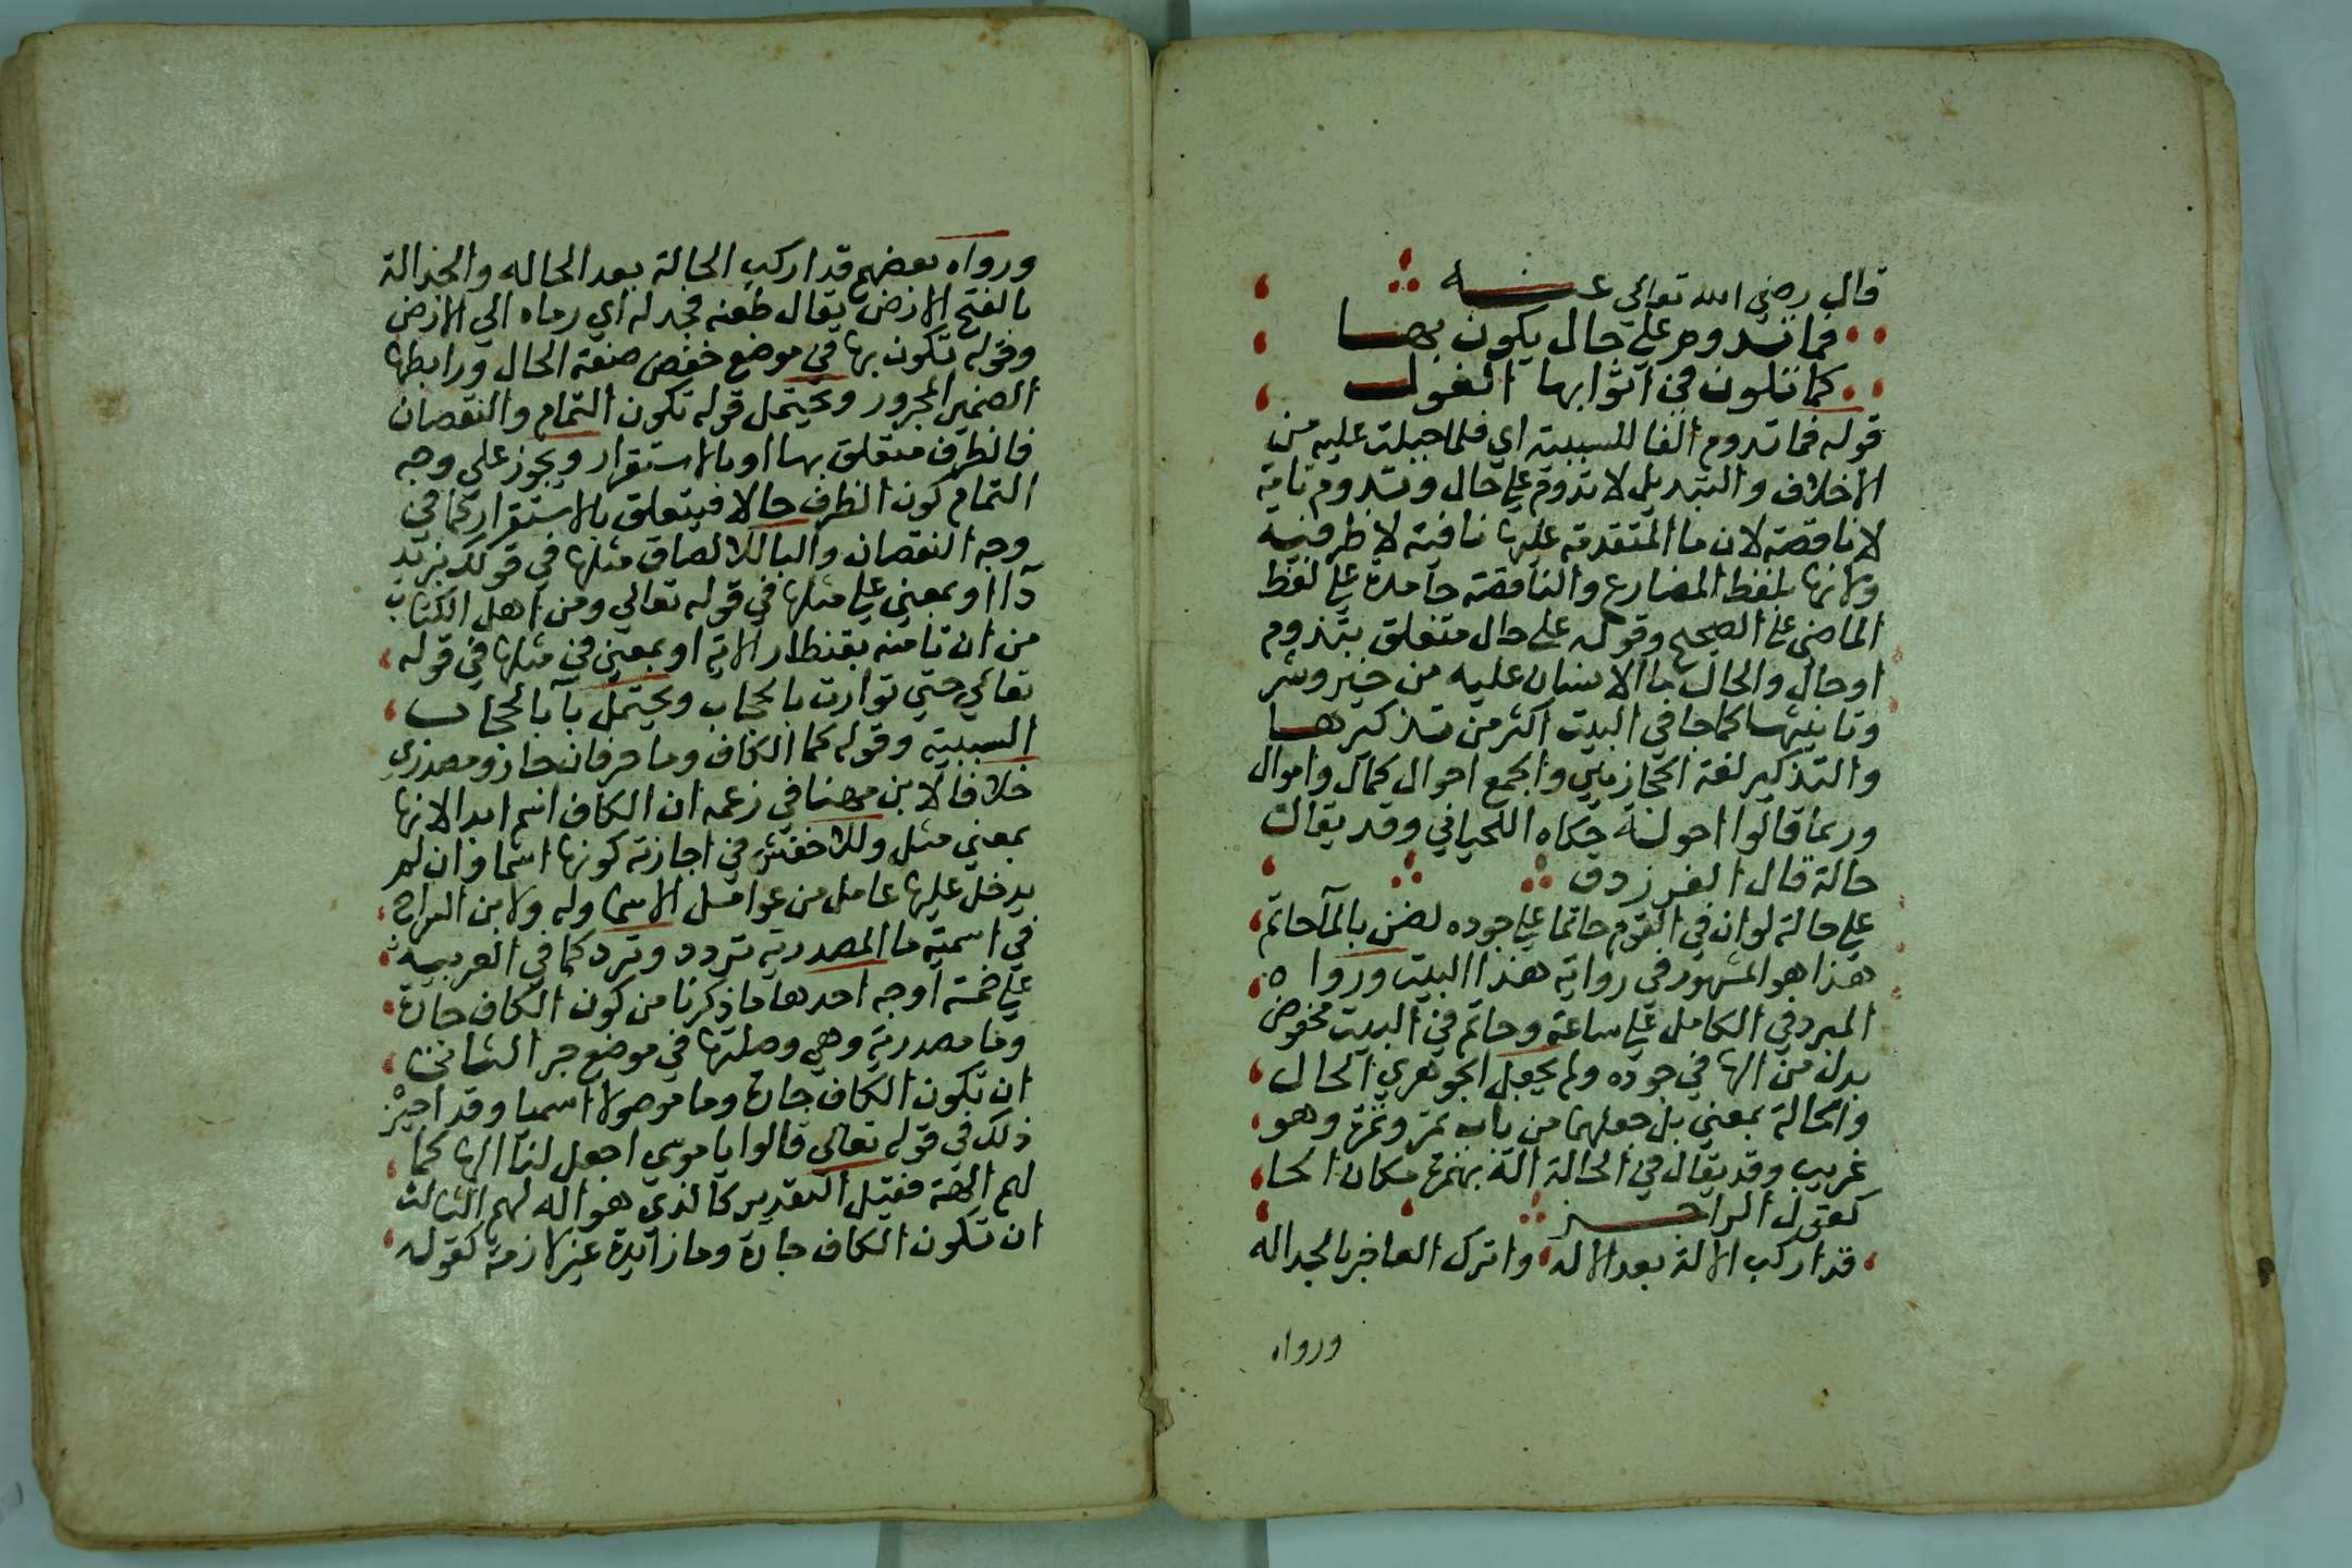 قال رضي الله تعالى عنه
فما تدوم على حال يكون بها
كما تلون في اثوابها الغول
قوله فما تدوم الفا للسببية اي فلما جبلت عليه من
الاخلاف والتبديل لا تدوم على حال وتدوم تامة
لا ناقصة لان ما المتقدمة عليها نافية لا ظرفية
ولانها بلفظ المضارع والناقصة جامدة على لفظ
الماضي على الصحيح وقوله على حال متعلق بتدوم
او حال والحال ما الانسان عليه من خير وشر
وتانيثها كما جا في البيت اكثر من تذكيرها
والتذكير لغة الحجازيين والجمع احوال كمال واموال
وربما قالوا احولة حكاه اللحياني وقد يقال
حالة قال الفرزدق
على حالة لو ان في القوم حاتما على جوده لضن بالمآ حاتم
هذا هو المشهور في رواية هذا البيت ورواه
المبرد في الكامل على ساعة وحاتم في البيت مخفوض
بدل من الها في جوده ولم يجعل الجوهري الحال
والحالة بمعنى بل جعلهما من باب تمر وتمرة وهو
غريب وقد يقال في الحالة الة بهمزة مكان الحا
كقول الراجز
قد اركب الالة بعد الاله واترك العاجز بالجداله
ورواه
ورواه بعضهم قد اركب الحالة بعد الحاله والجدالة
بالفتح الارض يقال طعنه فجدله اي رماه الي الارض
وقوله تكون بها في موضع خفض صفة الحال ورابطها
الضمير المجرور ويحتمل قوله تكون التمام والنقصان
فالظرف متعلق بها او بالاستقرار ويجوز على وجه
التمام كون الظرف حالا فيتعلق بالاستقرار كما في
وجه النقصان والبا للالصاق مثلها في قولك بزيد
دآ او بمعني على مثلها في قوله تعالي ومن اهل الكتاب
من ان تامنه بقنطار الاية او بمعني في مثلها في قوله
تعالي حتي توارت بالحجاب ويحتمل بآ بالحجاب
السببية وقوله كما الكاف وما حرفان جار ومصدري
خلافا لابن مضا في زعمه ان الكاف اسم ابدا لانها
بمعني مثل وللاخفش في اجازته كونها اسما وان لم
يدخل عليها عامل من عوامل الاسما وله ولابن السراج
في اسمية ما المصدرية تردد وترد كما في العربية
على خمسة اوجه احدها ما ذكرنا من كون الكاف جارة
وما مصدرية وهي وصلتها في موضع جر الثاني
ان تكون الكاف جارة وما موصولا اسميا وقد اجيز
ذلك في قوله تعالي قالوا يا موسي اجعل لنا الها كما
لهم الهة فقيل التقدير كالذي هو اله لهم الثالث
ان تكون الكاف جارة وما زائدة غير لازمة كقوله